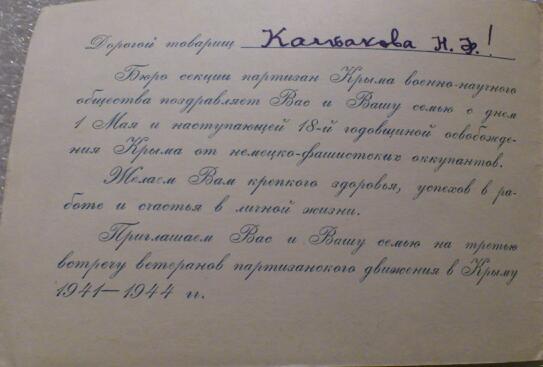 Дорогой товарищ Колтакова Н. Ф.!
Бюро секции партизан Крыма военно-научного
общества поздравляет Вас и Вашу семью с днем
1 Мая и наступающей 18-й годовщиной освобожде-
ния Крыма от немецко-фашистских оккупантов.
Желаем Вам крепкого здоровья, успехов в ра-
боте и счастья в личной жизни.
Приглашаем Вас и Вашу семью на третью
встречу ветеранов партизанского движения в Крыму
1941—1944 гг.